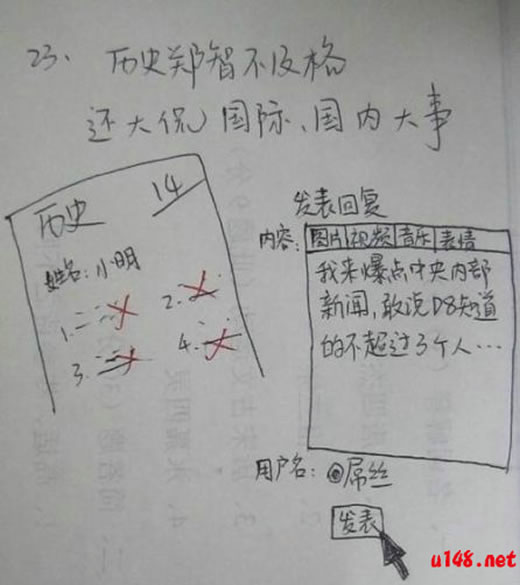 23. 历史郑智不及格
还大侃国际、国内大事
历史
14
姓名:小明
1.
2.
3.
4.
发表回复
内容:
图片 视频 音乐 表情
我来爆点中央内部
新闻,敢说D8知道
的不超过3个人…
用户名: @屌丝
发表
u148.net